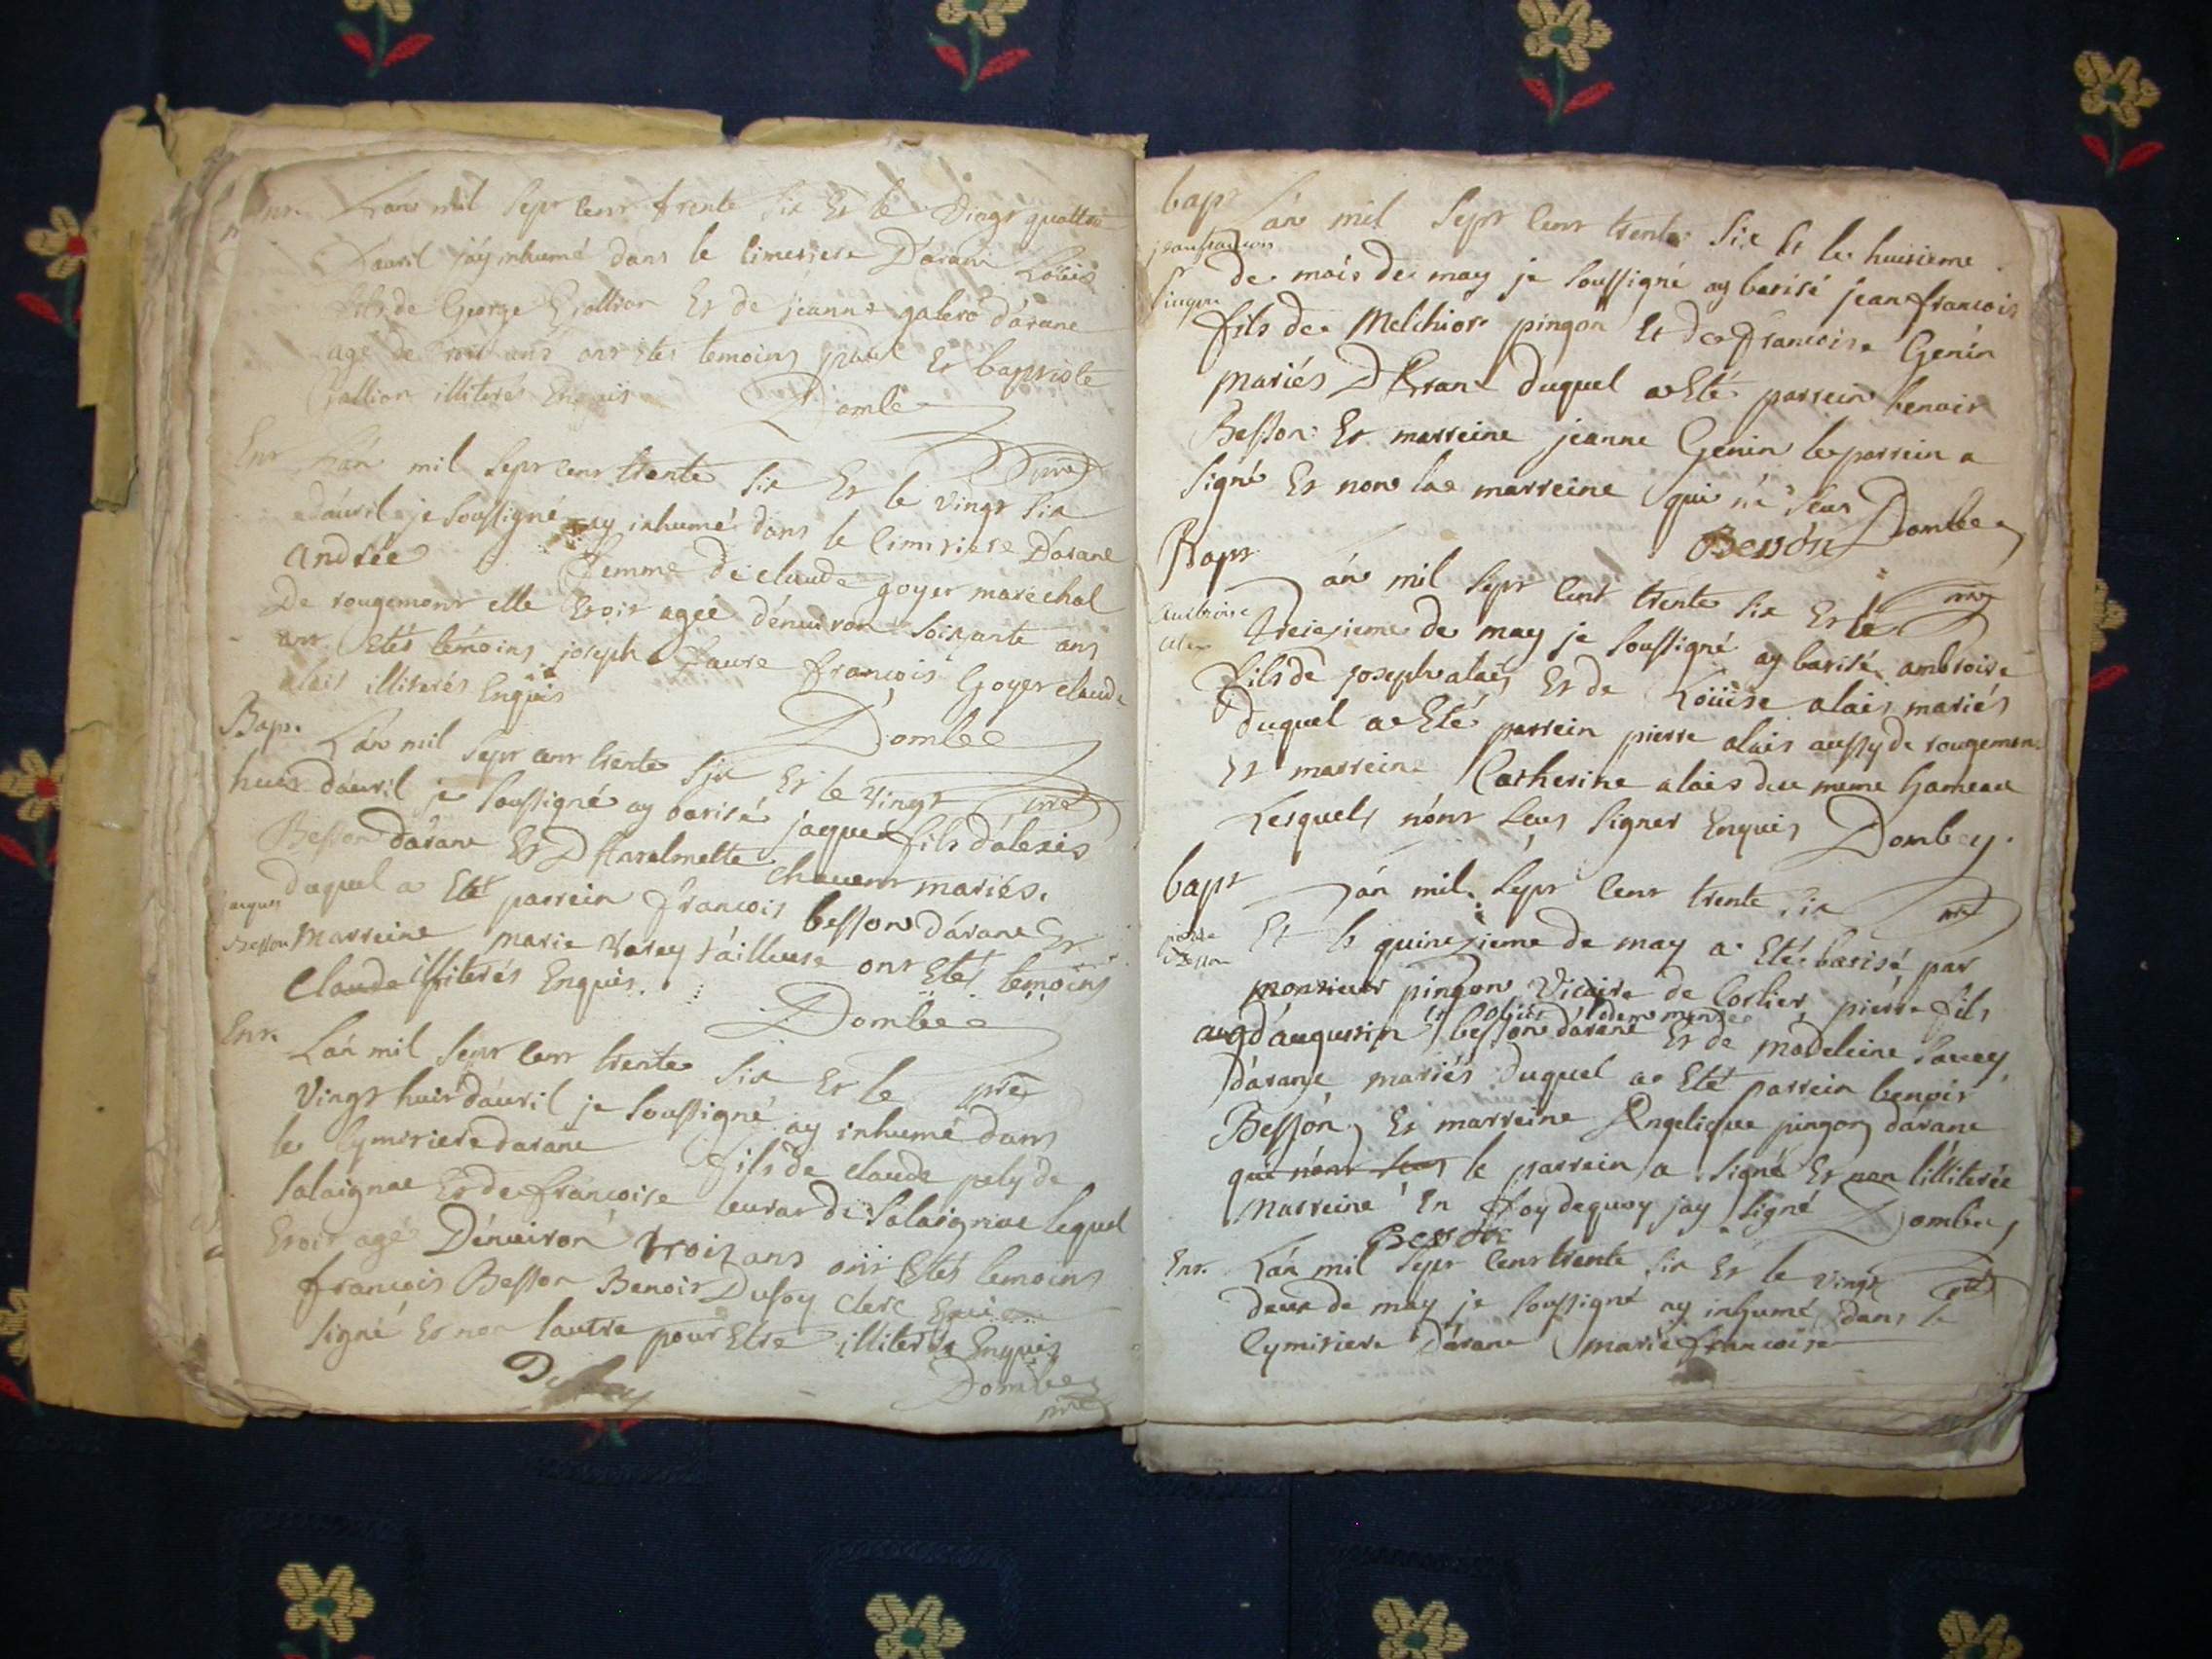 L'an mil sept cent trente six Et le vingt quattre
D'auril j'ay inhumé dans le cimetiere D'arane Loüis
fils de George Gallion Et de jeanne d'arane
agé de ans ont etés temoins paul Et baptiste
Gallion illiterés Enquis Dombe
Ent L'an mil sept cent trente six Et le vingt six ptre
d'auril je soussigné ay inhumé dans le cimitiere D'arane
andrée femme de claude goyer maréchal
De rougemont elle Etoit agée d'enuiron soixante ans
ont Etés temoins joseph faure françois Goyer claude
alais illiterés Enquis
Bap. L'an mil sept cent trente six Et le vingt Dombe
huit d'auril je soussigné ay batisé jaques fils d'alexis ptre
Besson d'arane Et D mariés.
duquel a Eté parrein francois besson d'arane Et
jacques
Besson Marreine marie Varey tailleuse ont Etés temoins
Claude illiterés Enquis.
Dombe
Ent. L'an mil sept cent trente six Et le ptre
Vingt huit d'auril je soussigné ay inhumé dans
le Cymitiere darane fils de claude pely de
Salaignac Et de francoise de Salaignac lequel
Etoit agé D'enuiron trois ans ont Etés temoins
francois Besson Benoit Dufoy Clerc Equi
signé Et non lautre pour Etre illiteré Enquis
Dombe
ptre
bapt L'an mil sept cent trente six Et le huitieme
jean francois
pingon
de mois de may je soussigné ay batisé jean francois
fils de Melchior pingon Et de francoise Genin
mariés D'Aran duquel a Eté parrein benoit
Besson Et marreine jeanne Genin le parrein a
signé Et non la marreine qui n'a sçeu Dombe
Besson
Bapt L'an mil sept cent trente six Et le ptre
ambroise
alais
treizieme de may je soussigné ay batisé ambroise
fils de joseph alais Et de Loüise alais mariés
duquel a Eté parrein pierre alais aussy de rougemon
Et marreine Catherine alais du meme hameau
Lesquels n'ont sceu signer Enquis Dombey.
bapt L'an mil sept cent trente six ptre
pierre
Besson
Et le quinzieme de may a Eté batisé par
monsieur pingon Vicaire de Corlier pierre fils
aug d'augustin besson d'arane Et de Madeleine
d'arane mariés duquel a Eté parrein benoit
Besson Et marreine Angelique pingon d'arane
qui n'ont sceu le parrein a signé Et non l'illiterée
Marreine En foy de quoy jay signé Dombey
Besson
Ent. L'an mil sept cent trente six Et le vingt ptre
deux de may je soussigné ay inhumé dans le
Cymitiere D'arane marie francoise